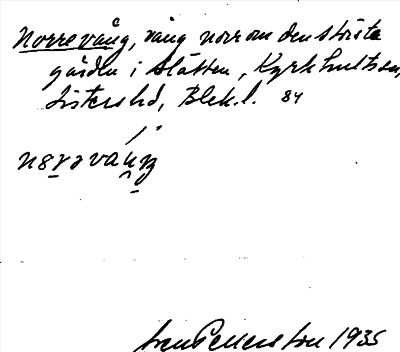 Norrevång, vång norr om den största
gården i Slätten, Kyrkhultssn,
Listershd, Blek.l. 84
Sven Petterson 1935